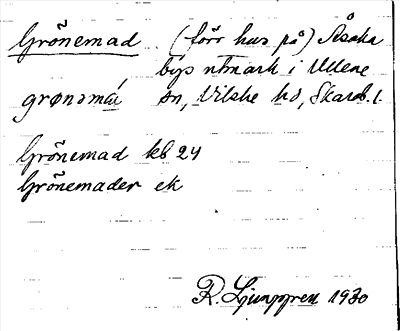 Grönemad (förr hus på) Åsaka
bys utmark i Ullene
grønəmá sn, Vilske hd, Skarab. l.
Grönemad kb 24
Grönemader ek
R. Ljunggren 1930